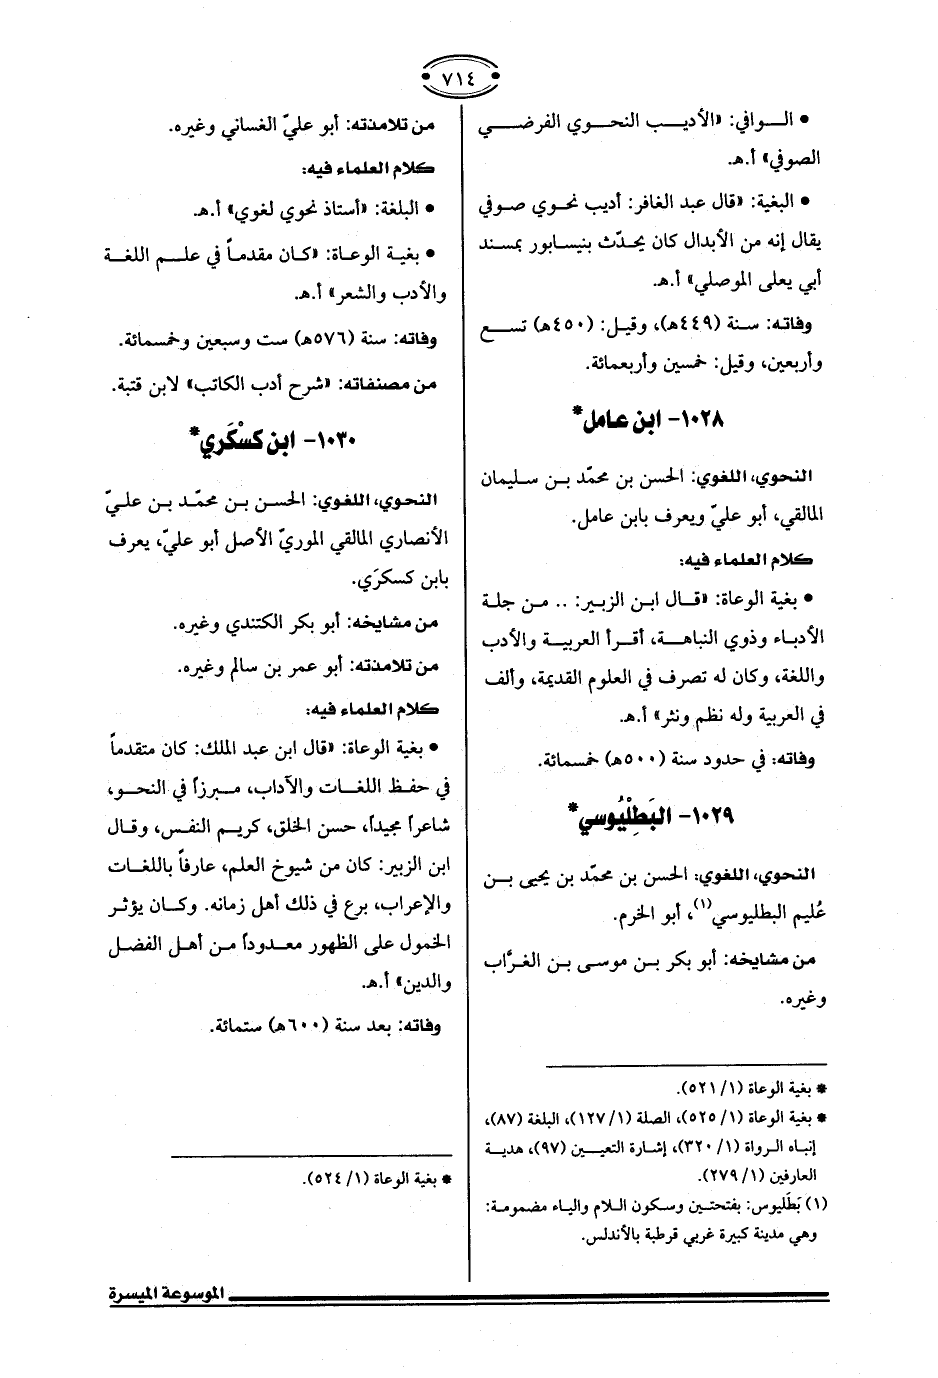 ٧١٤
• الوافي: «الأديب النحوي الفرضي
الصوفي» أ.هـ.
• البغية: «قال عبد الغافر: أديب نحوي صوفي
يقال إنه من الأبدال كان يحدّث بنيسابور بمسند
أبي يعلى الموصلي» أ.هـ.
وفاته: سنة (٤٤٩هـ)، وقيل: (٤٥٠هـ) تسع
وأربعين، وقيل: خمسين وأربعمائة.
١٠٢٨- ابن عامل*
النحوي، اللغوي: الحسن بن محمّد بن سليمان
المالقي، أبو عليّ ويعرف بابن عامل.
كلام العلماء فيه:
• بغية الوعاة: «قال ابن الزبير: .. من جلة
الأدباء وذوي النباهة، أقرأ العربية والأدب
واللغة، وكان له تصرف في العلوم القديمة، وألف
في العربية وله نظم ونثر» أ.هـ.
وفاته: في حدود سنة (٥٠٠هـ) خمسمائة.
١٠٢٩- البَطِلْيُوسي*
النحوي، اللغوي: الحسن بن محمّد بن يحيى بن
عُليم البطليوسي(١)، أبو الخرم.
من مشايخه: أبو بكر بن موسى بن الغرَّاب
وغيره.
* بغية الوعاة (١/ ٥٢١).
* بغية الوعاة (١/ ٥٢٥)، الصلة (١/ ١٢٧)، البلغة (٨٧)،
إنباه الرواة (١/ ٣٢٠)، إشارة التعيين (٩٧)، هدية
العارفين (١/ ٢٧٩).
(١) بَطَليوس: بفتحتين وسكون اللام والياء مضمومة:
وهي مدينة كبيرة غربي قرطبة بالأندلس.
من تلامذته: أبو عليّ الغساني وغيره.
كلام العلماء فيه:
• البلغة: «أستاذ نحوي لغوي» أ.هـ.
• بغية الوعاة: «كان مقدماً في علم اللغة
والأدب والشعر» أ.هـ.
وفاته: سنة (٥٧٦هـ) ست وسبعين وخمسمائة.
من مصنفاته: «شرح أدب الكاتب» لابن قتبة.
١٠٣٠- ابن كسْكَري*
النحوي، اللغوي: الحسن بن محمّد بن عليّ
الأنصاري المالقي الموريّ الأصل أبو عليّ، يعرف
بابن كسكرَي.
من مشايخه: أبو بكر الكتندي وغيره.
من تلامذته: أبو عمر بن سالم وغيره.
كلام العلماء فيه:
• بغية الوعاة: «قال ابن عبد الملك: كان متقدماً
في حفظ اللغات والآداب، مبرزاً في النحو،
شاعراً مجيداً، حسن الخلق، كريم النفس، وقال
ابن الزبير: كان من شيوخ العلم، عارفاً باللغات
والإعراب، برع في ذلك أهل زمانه. وكان يؤثر
الخمول على الظهور معدوداً من أهل الفضل
والدين» أ.هـ.
وفاته: بعد سنة (٦٠٠هـ) ستمائة.
* بغية الوعاة (١/ ٥٢٤).
الموسوعة الميسرة